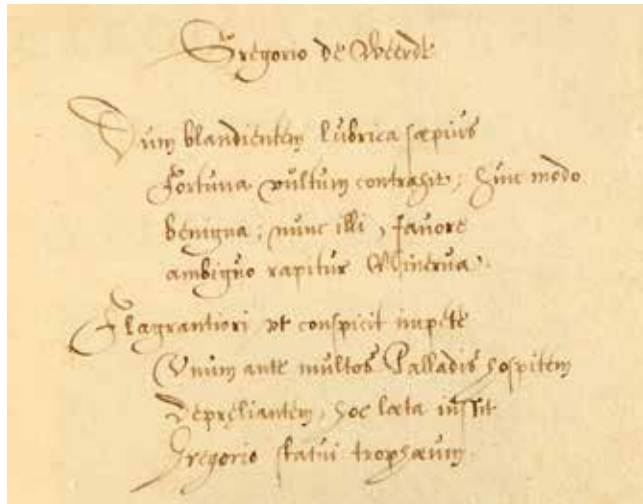 Gregorio de Weerdt
Dum blandientem lubrica sæpius
Fortuna vultum contrahit; hunc modo
benigna; nunc illi, favore
ambiguo rapitur Minerva.
Flagrantiori vt conspicit impete
Vnum ante multos Palladis hospitem
Depreliantem, hoc læta iussit
Gregorio statui trophæum.